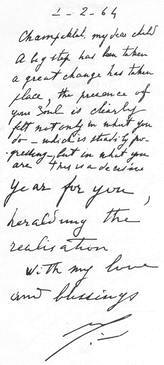 1-2-64
Champaklal, my dear child
A big step has been taken
a great change has taken
place, the presence of
your Soul is clearly
felt not only in what you
do – which is steadily pro-
gressing – but in what you
are. This is a decisive
year for you,
heralding the
realisation
with my love
and blessings